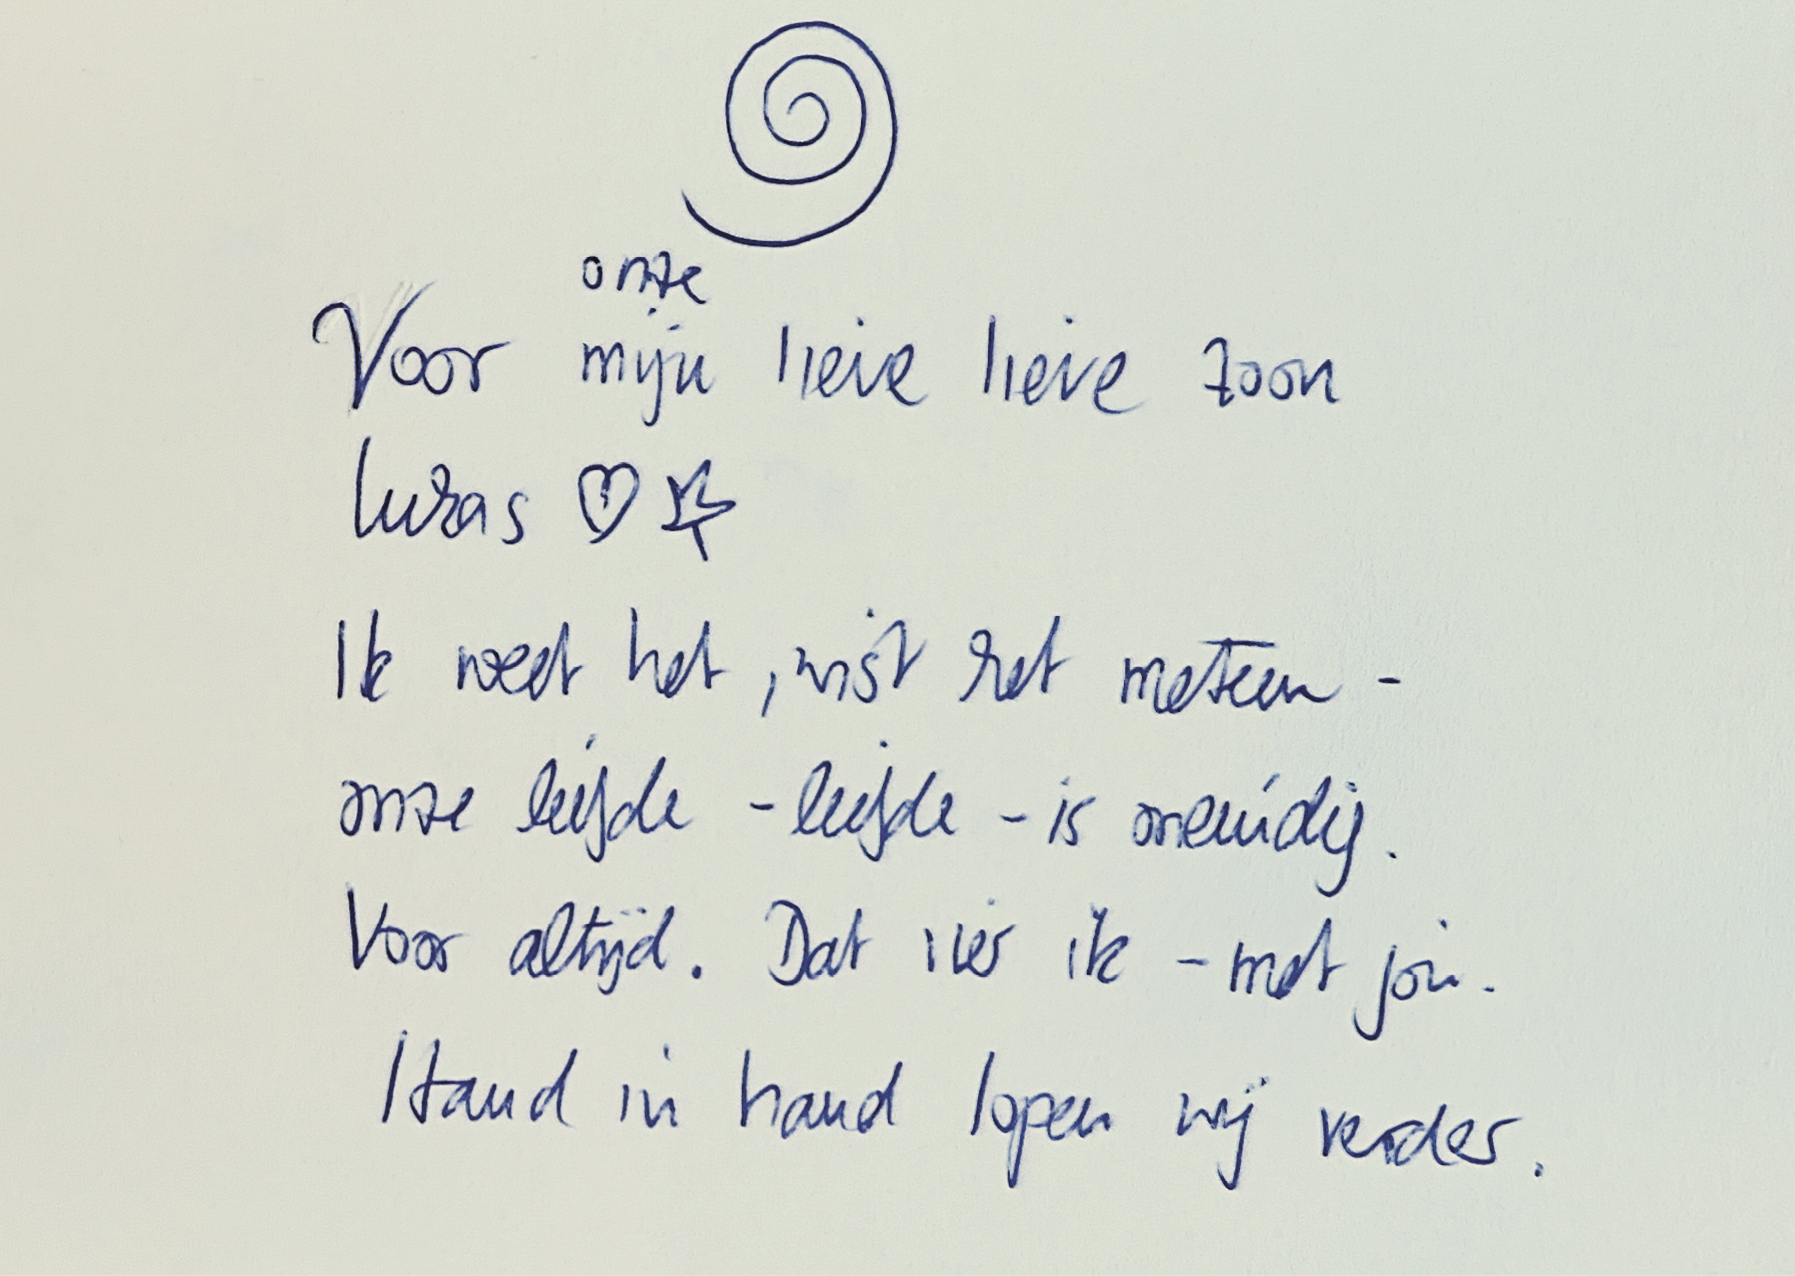 onze
Voor mijn lieve lieve zoon
Lukas ♡☆
Ik weet het, wist het meteen -
onze liefde - liefde - is oneindig.
Voor altijd. Dat vier ik - met jou.
Hand in hand lopen wij verder.